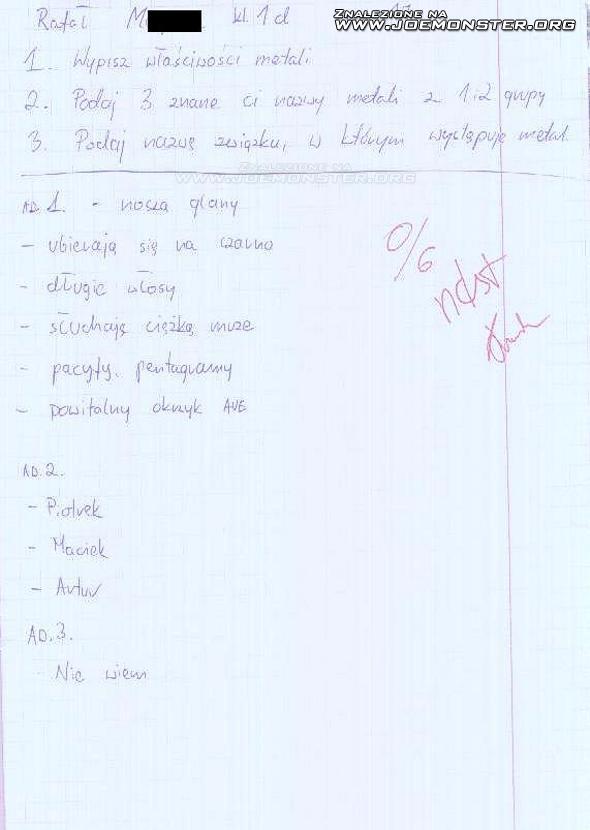 Rafał M kl. 1 d
ZNALEZIONE NA
WWW.JOEMONSTER.ORG
1. Wypisz właściwości metali
2. Podaj 3 znane ci nazwy metali z 1 i 2 grupy
3. Podaj nazwę związku, w którym występuje metal.
ZNALEZIONE NA
WWW.JOEMONSTER.ORG
AD 1. - noszą glany
- ubierają się na czarno
- długie włosy
- słuchają ciężką muze
- pacyfy, pentagramy
- powitalny okrzyk AVE
0/6
ndst
AD. 2.
- Piotrek
- Maciek
- Artur
AD. 3.
Nie wiem